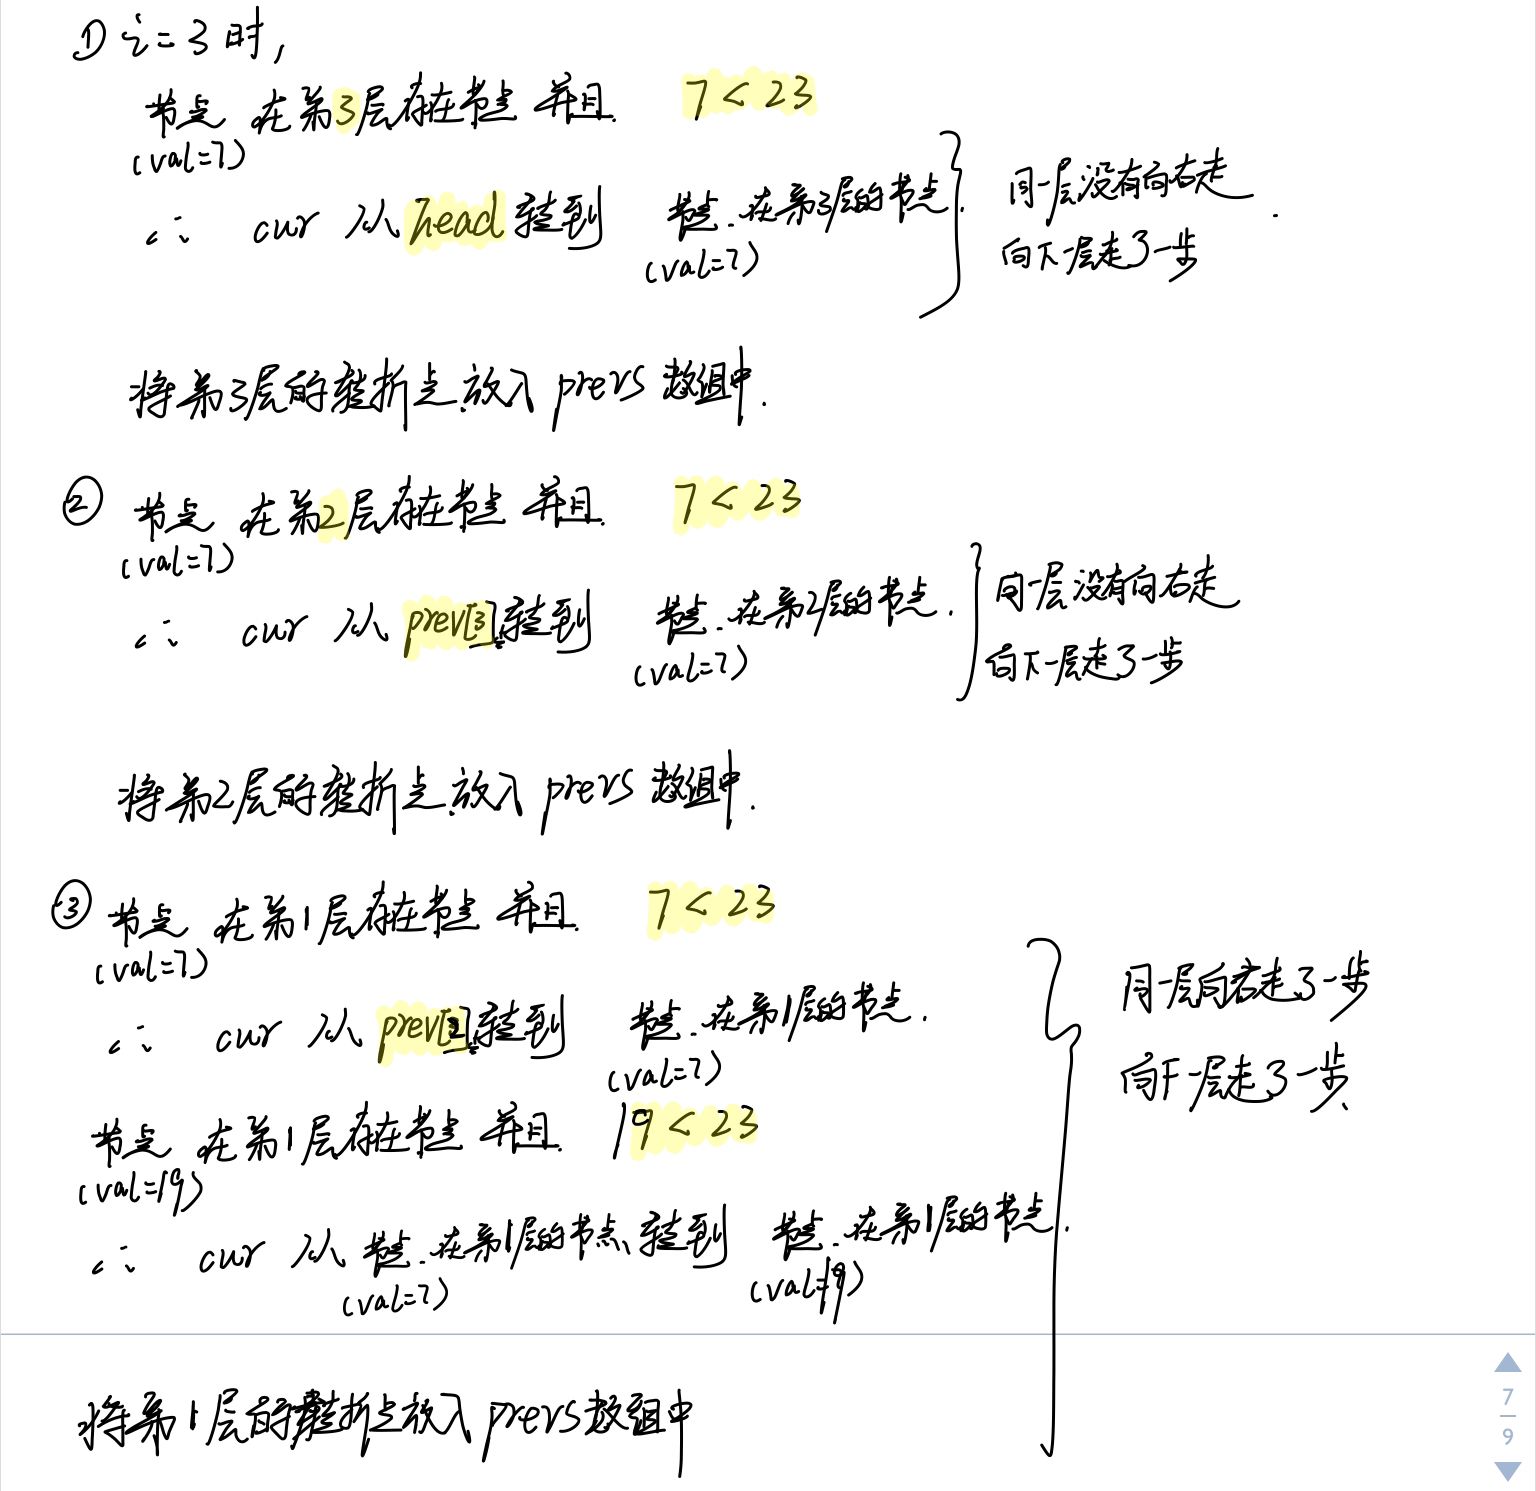 ① i=3时,
节点 在第3层存在节点 并且 7<23
(val=7)
∴ cur 从head转到 节点.在第3层的节点.
(val=7)
同一层没有向右走.
向下一层走了一步
将第3层的转折点.放入 prevs 数组中.
② 节点 在第2层存在节点 并且 7<23
(val=7)
∴ cur 从prev[3]转到 节点.在第2层的节点.
(val=7)
同一层没有向右走
向下一层走了一步
将第2层的转折点.放入 prevs 数组中.
③ 节点 在第1层存在节点 并且 7<23
(val=7)
∴ cur 从prev[2]转到 节点.在第1层的节点.
(val=7)
节点 在第1层存在节点 并且 19<23
(val=19)
∴ cur 从 节点.在第1层的节点、转到 节点.在第1层的节点.
(val=7) (val=19)
同一层向右走了一步
向下一层走了一步
将第1层的转折点放入prevs数组中
7
9